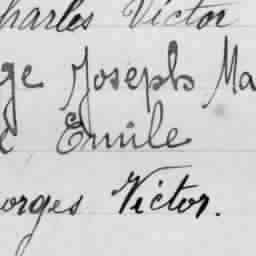 harles Victor
ge Joseph Ma
c Emile
orges Victor.